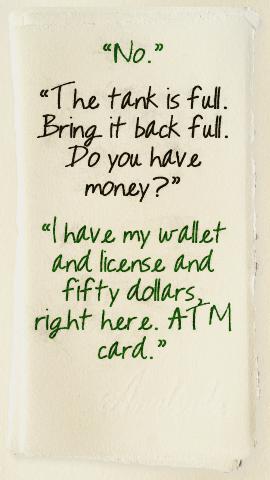 “No.”
“The tank is full.
Bring it back full.
Do you have
money?”
“I have my wallet
and license and
fifty dollars,
right here. ATM
card.”